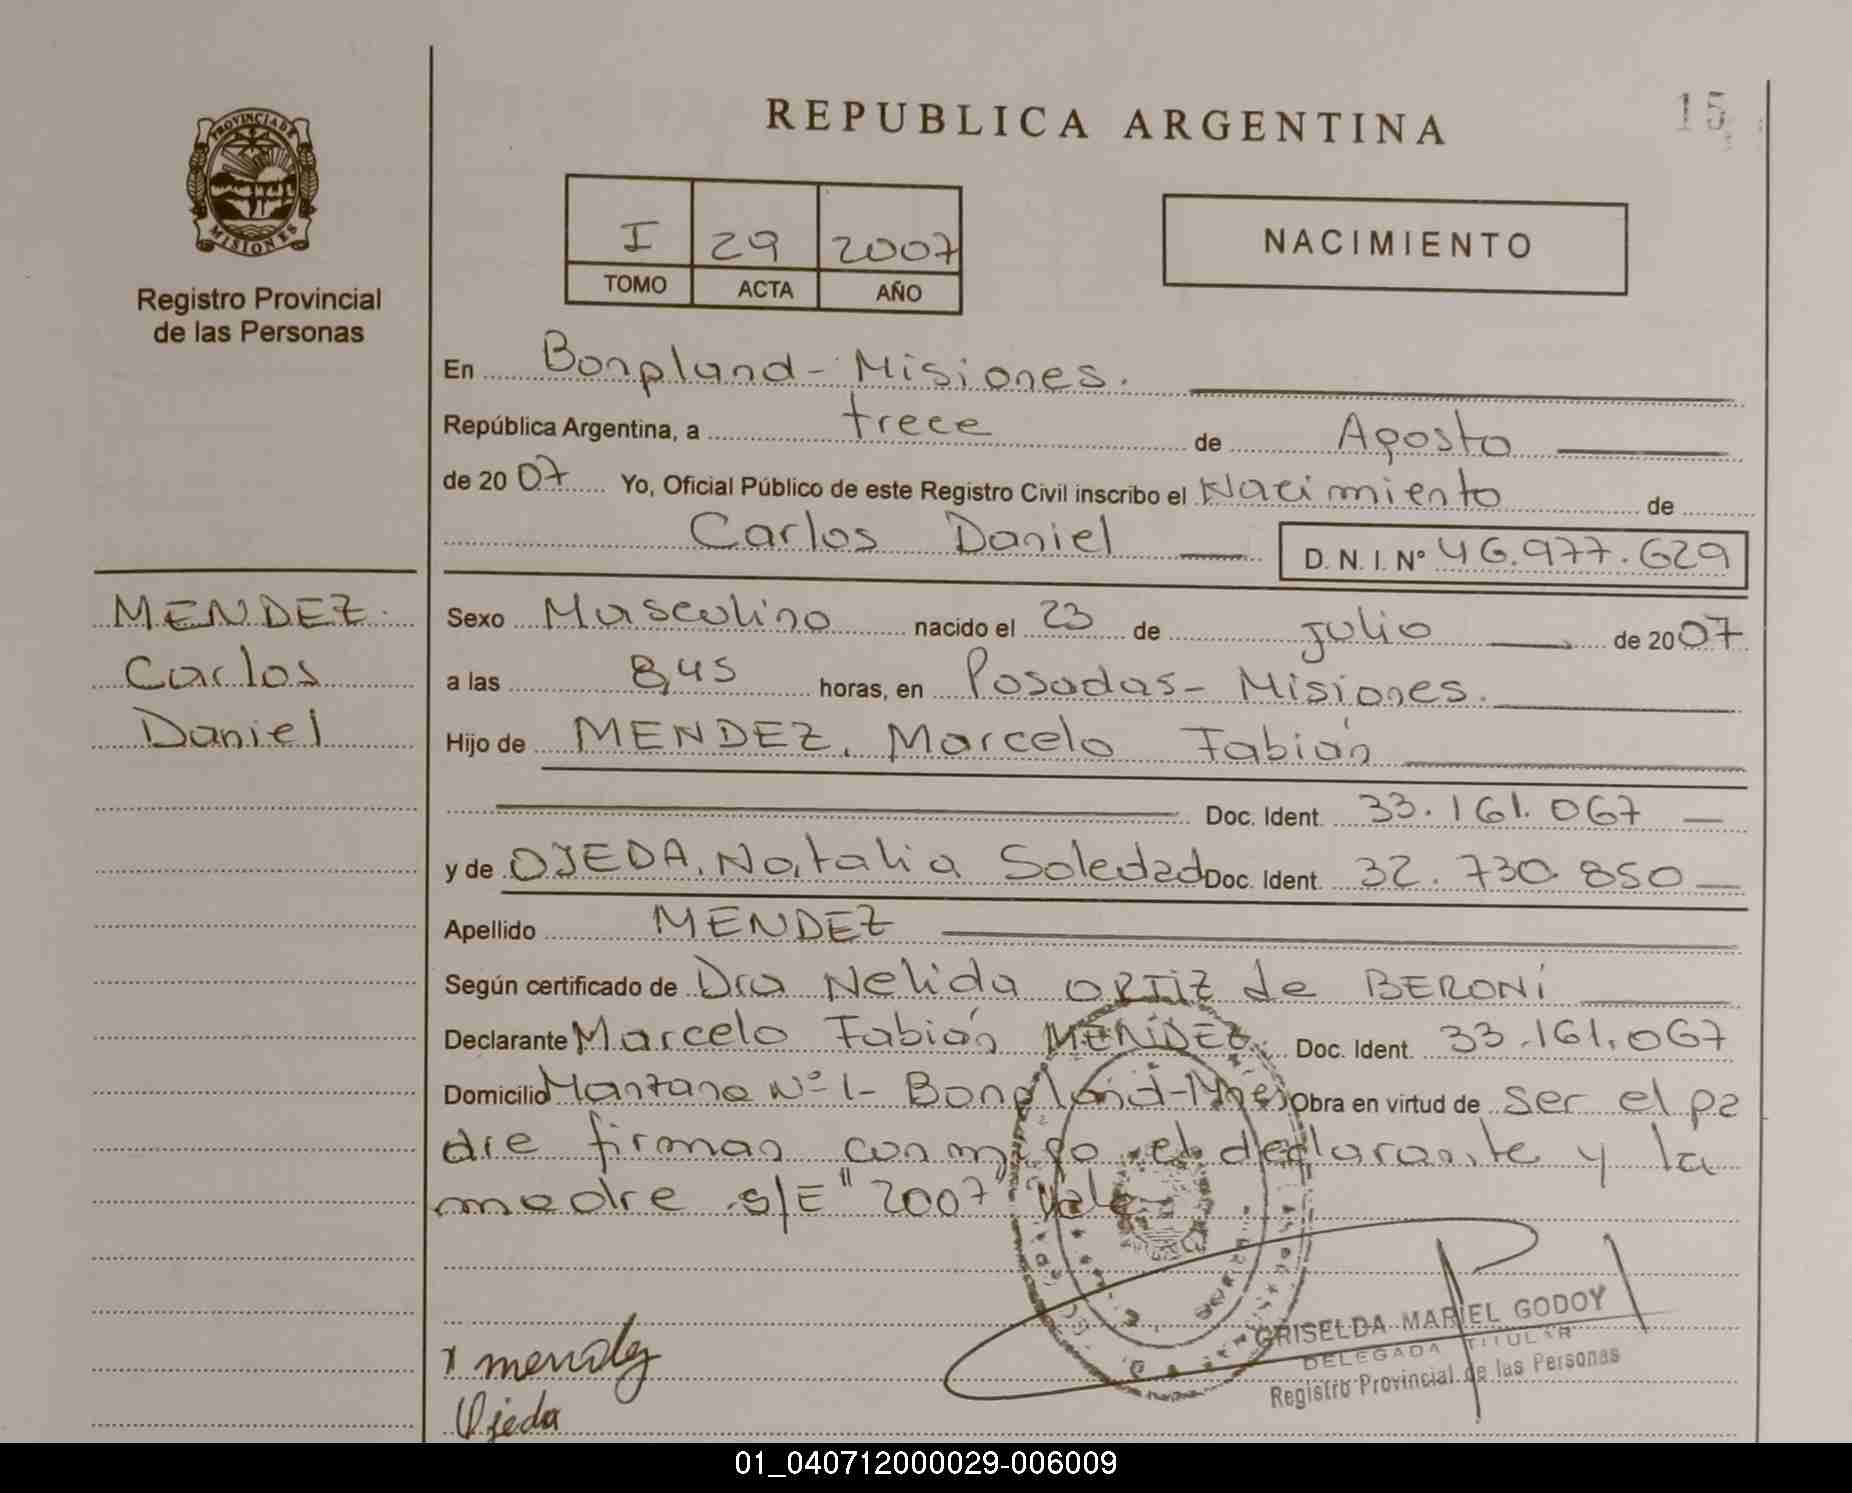 REPUBLICA ARGENTINA
15
PROVINCIA DE
MISIONES
Registro Provincial
de las Personas
I 29 2007
TOMO ACTA AÑO
NACIMIENTO
En Bonpland - Misiones.
República Argentina, a trece de Agosto
de 2007 Yo, Oficial Público de este Registro Civil inscribo el Nacimiento de
Carlos Daniel D. N. I. Nº 46.977.629
MENDEZ.
Carlos
Daniel
Sexo Masculino nacido el 23 de julio de 2007
a las 8,45 horas, en Posadas - Misiones.
Hijo de MENDEZ, Marcelo Fabián
Doc. Ident. 33.161.067
y de OJEDA, Natalia Soledad Doc. Ident. 32.730.850
Apellido MENDEZ
Según certificado de Dra Nelida ORTIZ de BERONI
Declarante Marcelo Fabián MENDEZ. Doc. Ident. 33.161.067
Domicilio Manzana Nº 1 - Bonpland - Mnes Obra en virtud de ser el pa
dre firman conmigo el declarante y la
madre s/E "2007" Vale
GRISELDA MARIEL GODOY
DELEGADA TITULAR
Registro Provincial de las Personas
x mendez
Ojeda
01_040712000029-006009